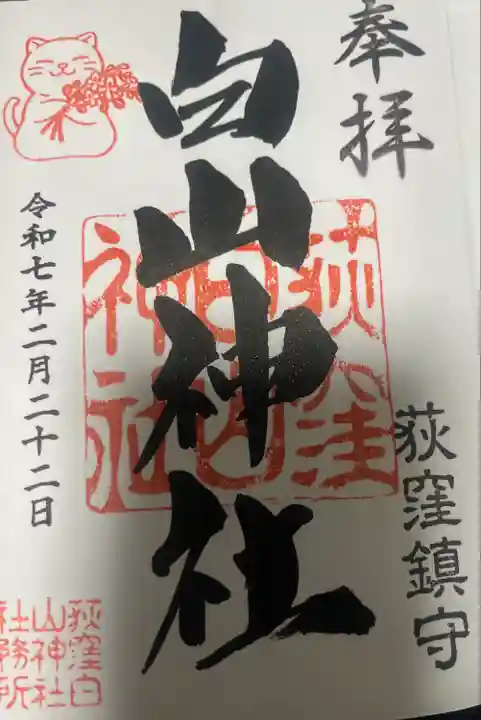 奉拝
荻窪鎮守
白山神社
荻窪
白山
神社
令和七年二月二十二日
荻窪白
山神社
社務所